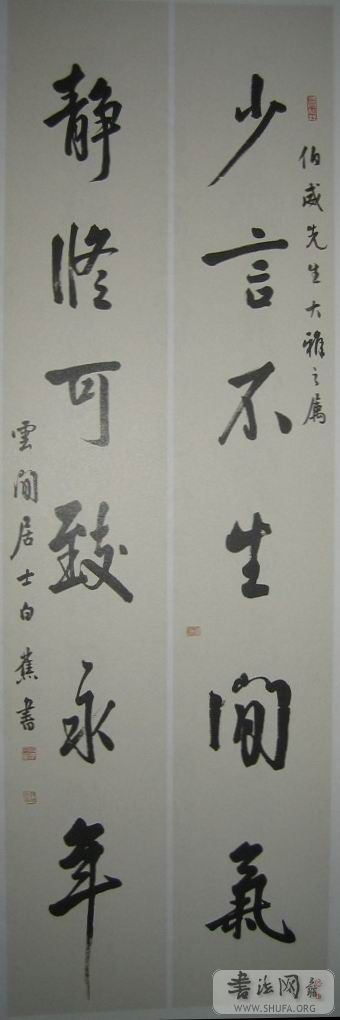 伯威先生大雅之属
少言不生閒氣
静修可致永年
雲間居士白蕉書
書法网
WWW.SHUFA.ORG